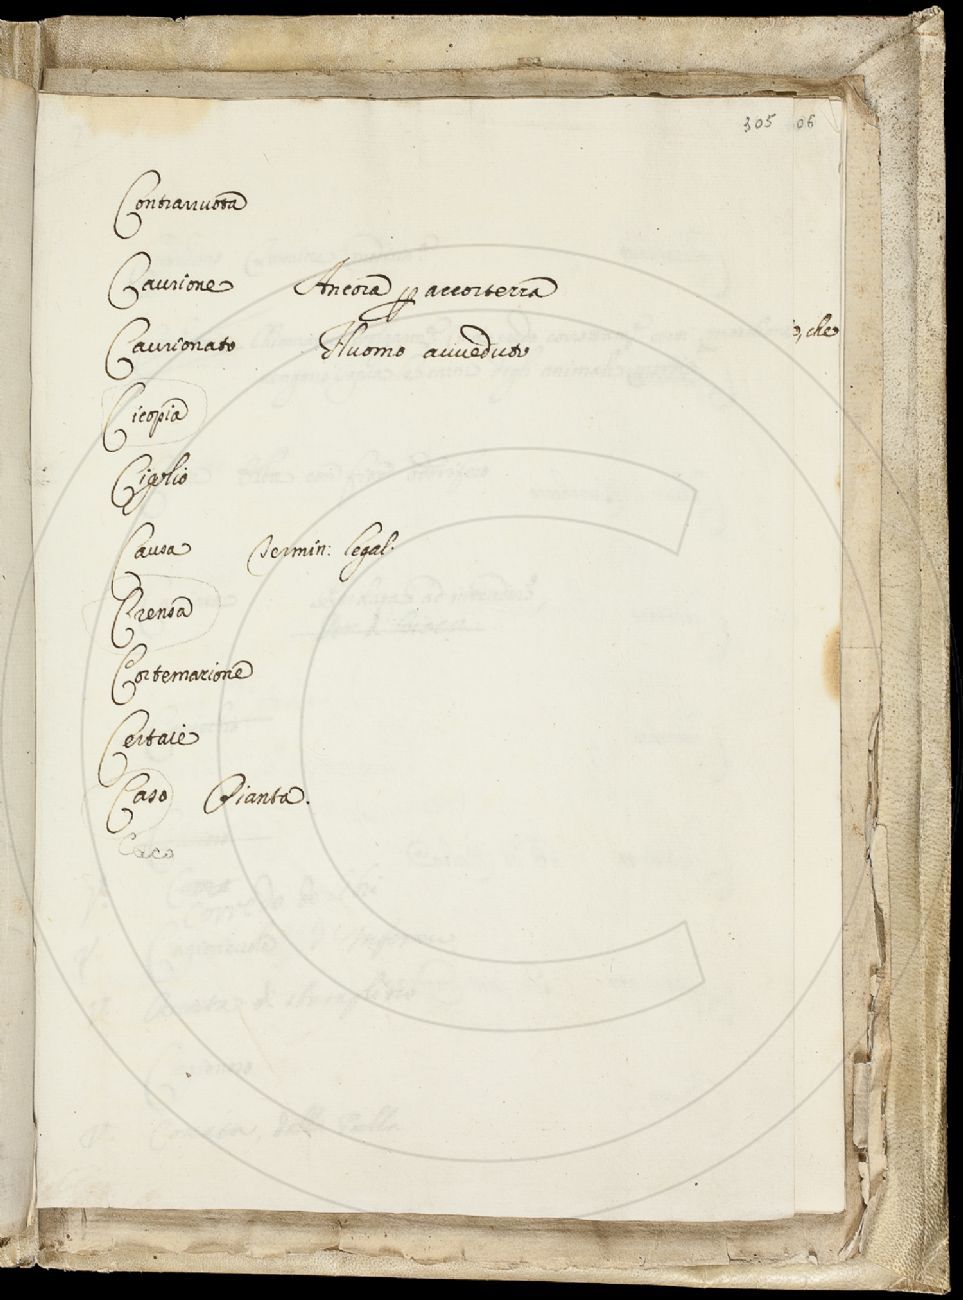 305 06
Contraruota
Caurione Ancora p accortezza
e, che
Caurionato Huomo auueduto
Cicopia
Ciglio
Causa Termin: legal:
Crensa
Cortemarione
Certaie
Caso Pianta.
Caco